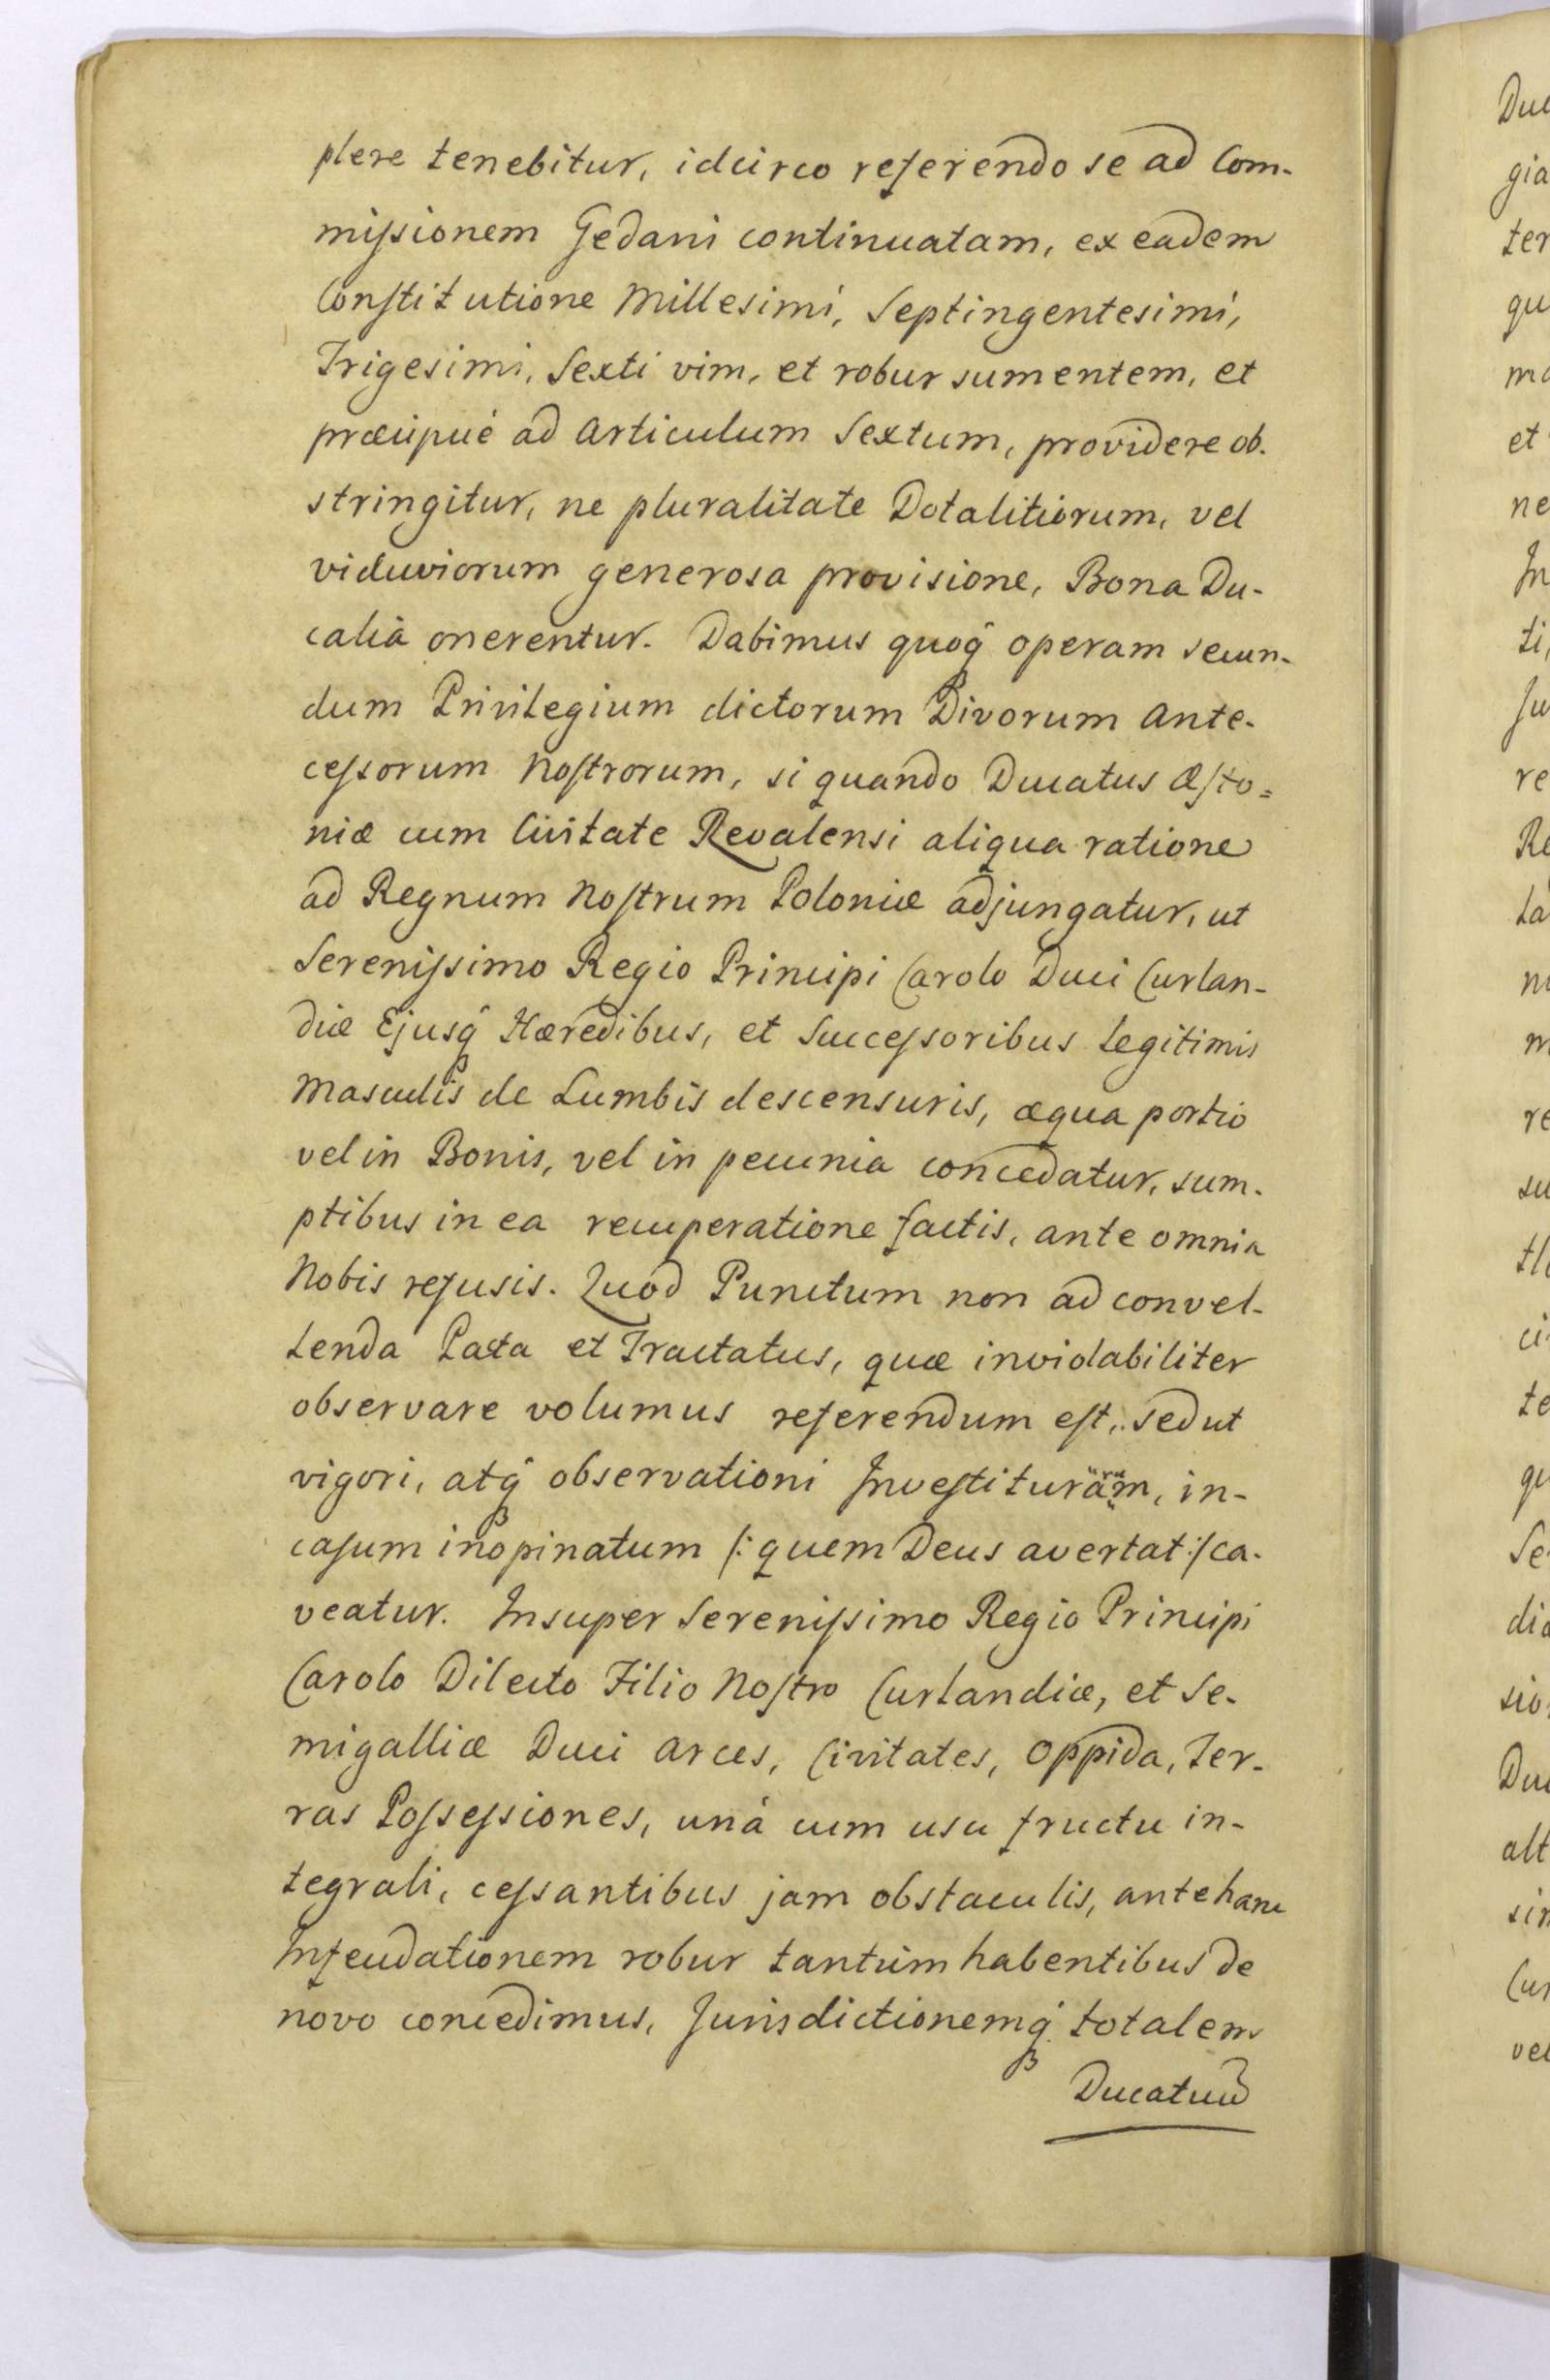 plere tenebitur, idcirco referendo se ad Com-
missionem Gedani continuatam, ex eadem
Constitutione Millesimi, Septingentesimi,
Trigesimi, Sexti vim, et robur sumentem, et
præcipué ad Articulum Sextum, providere ob-
stringitur, ne pluralitate Dotalitiorum, vel
viduviorum generosa provisione, Bona Du-
calia onerentur. Dabimus quoq́ operam secun-
dum Privilegium dictorum Divorum Ante-
cessorum Nostrorum, si quando Ducatus Æsto=
niæ cum Civitate Revalensi aliqua ratione
ad Regnum Nostrum Poloniæ adjungatur, ut
Serenissimo Regio Principi Carolo Duci Curlan-
diæ Ejusq́ Hæredibus, et Successoribus Legitimis
Masculis de Lumbis descensuris, æqua portio
vel in Bonis, vel in pecunia concedatur, sum-
ptibus in ea recuperatione factis, ante omnia
Nobis refusis. Quod Punctum non ad convel-
lenda Pacta et Tractatus, quæ inviolabiliter
observare volumus referendum est, sed ut
vigori, atq́ observationi Investiturarum, in-
casum inopinatum /: quem Deus avertat :/ ca-
veatur. Insuper Serenissimo Regio Principi
Carolo Dilecto Filio Nostro Curlandiæ, et Se-
migalliæ Duci Arces, Civitates, Oppida, Ter-
ras Possessiones, uná cum usu fructu in-
tegrali, cessantibus jam obstaculis, ante hanc
Infeudationem robur tantùm habentibus de
novo concedimus, Jurisdictionemq́ totalem
Ducatuum
Duc
gia
ter
qu
ma
et
ne
In
ti,
Ju
re
Re
la
m
re
su
ci
te
qu
Se
dia
sio
Du
alt
sin
Cur
vel